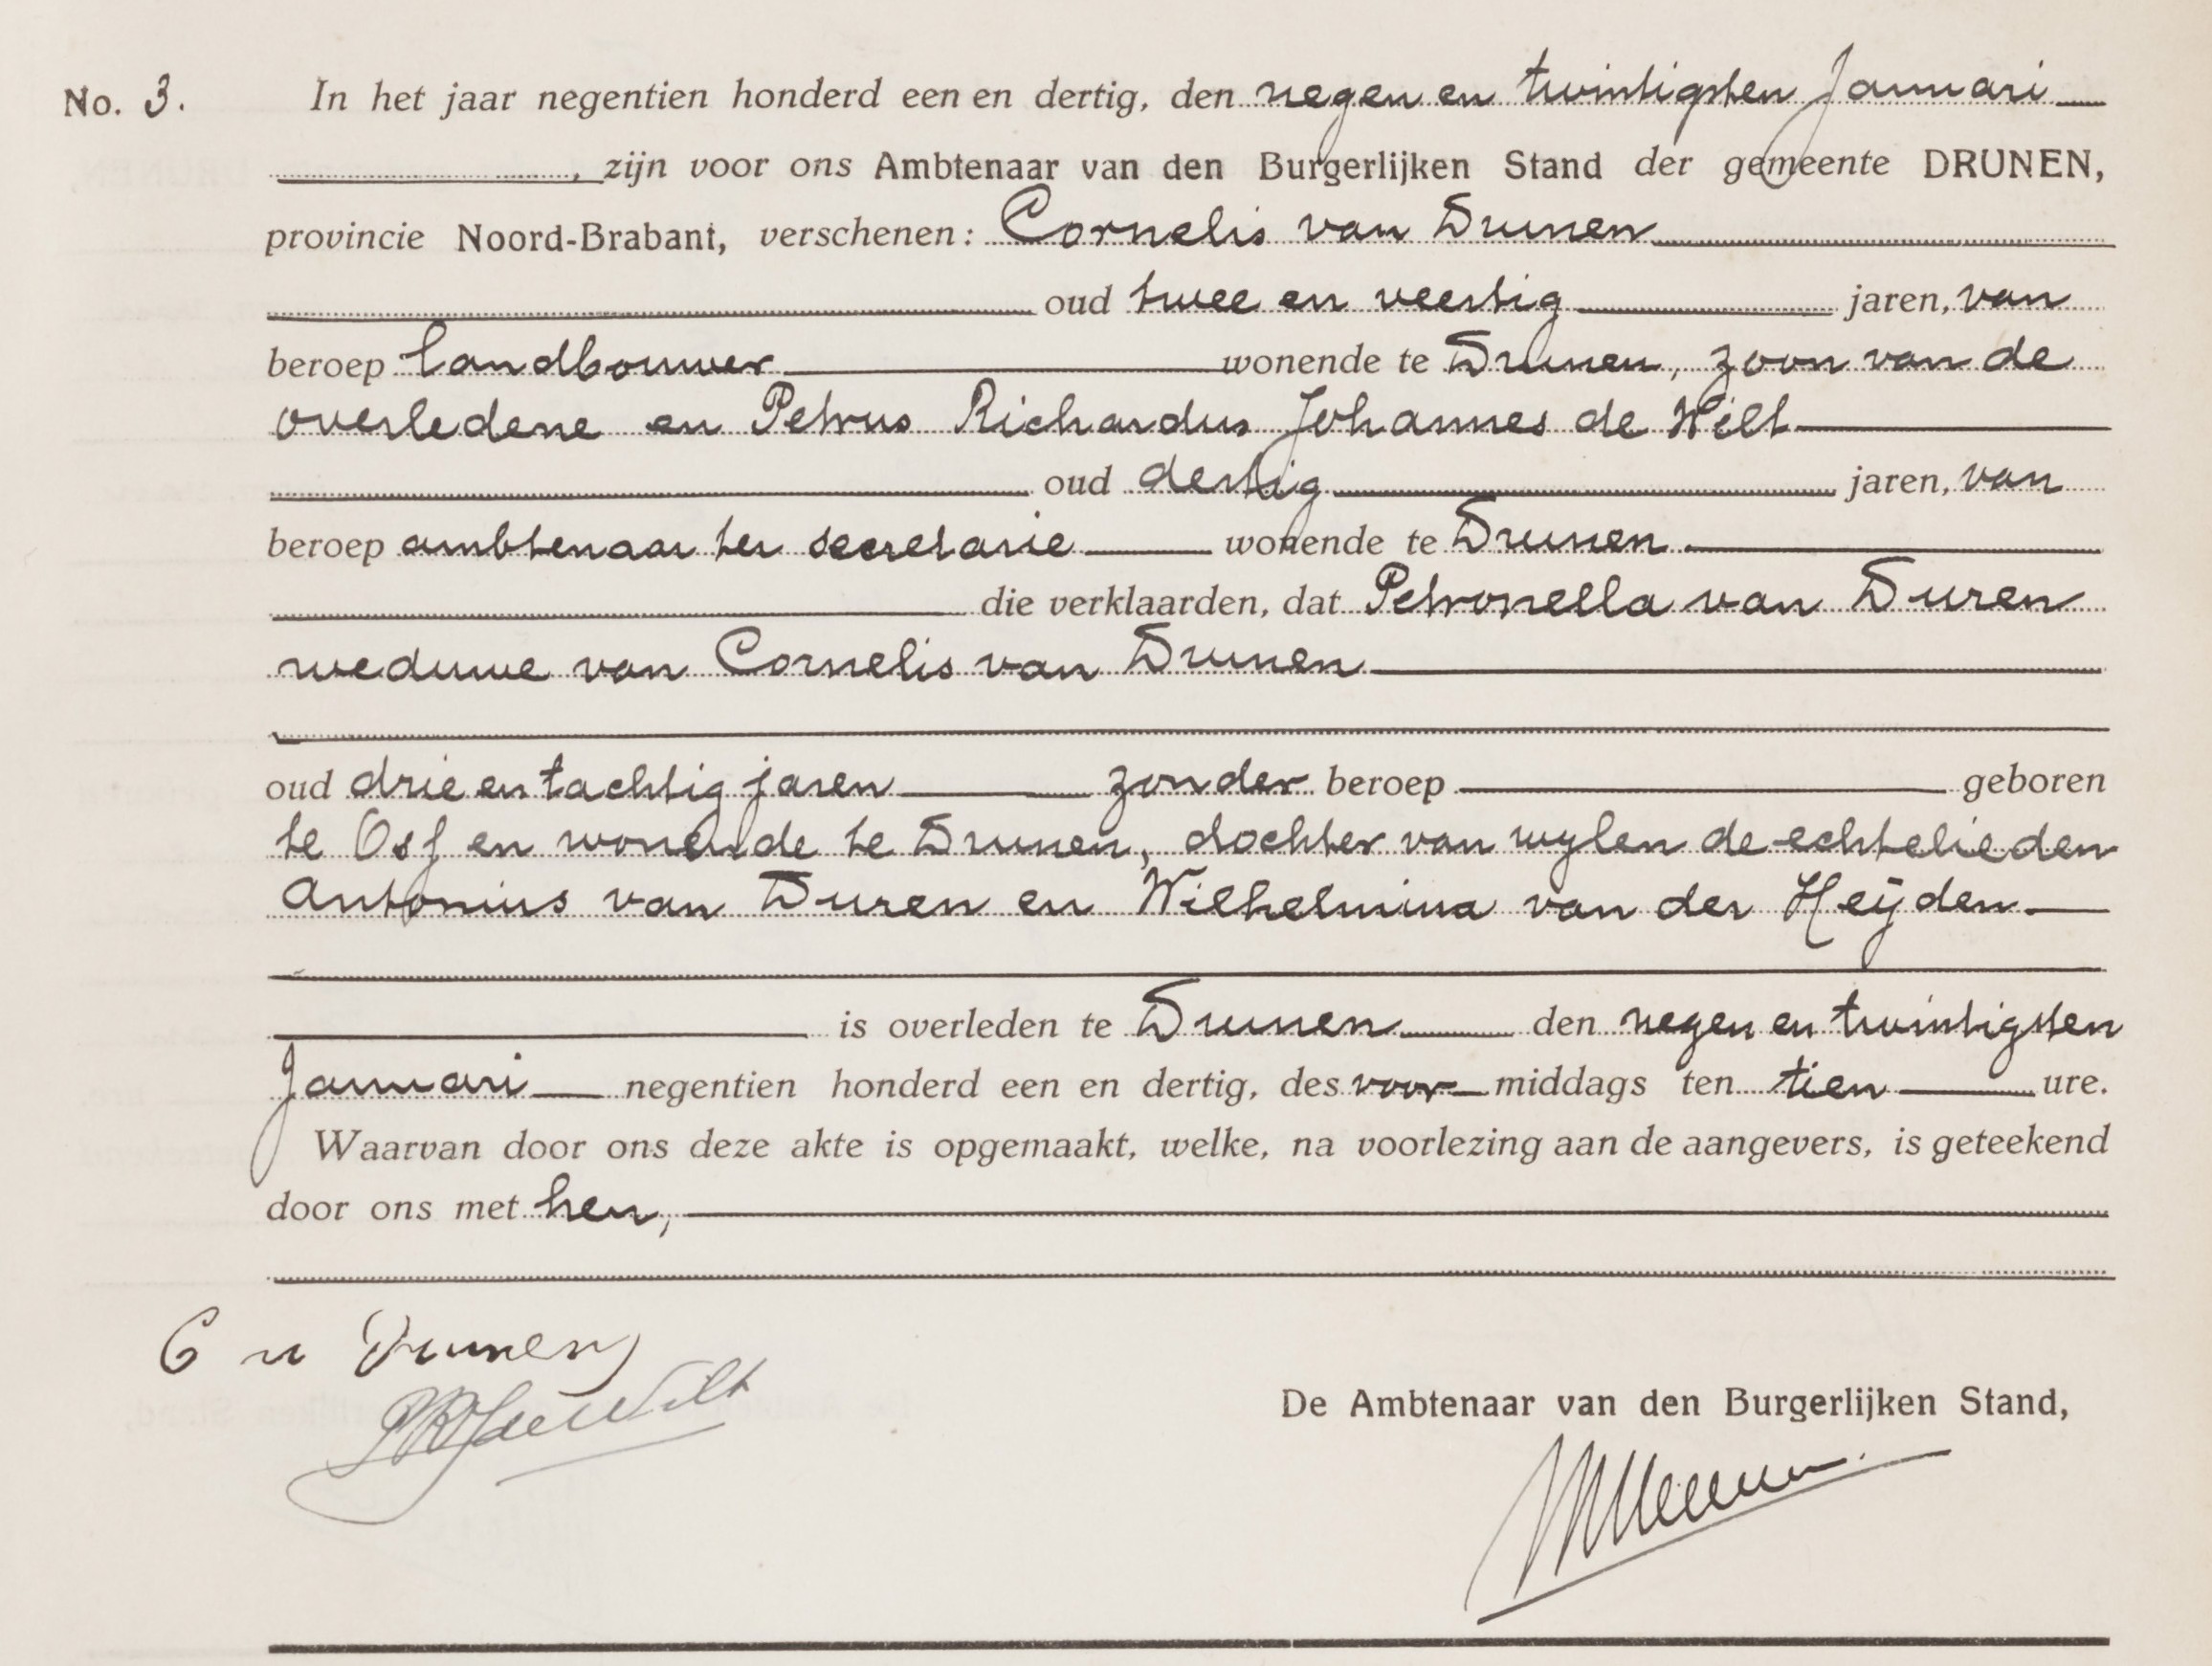 No. 3. In het jaar negentien honderd een en dertig, den negen en twintigsten Januari
, zijn voor ons Ambtenaar van den Burgerlijken Stand der gemeente DRUNEN,
provincie Noord-Brabant, verschenen: Cornelis van Drunen
oud twee en veertig jaren, van
beroep landbouwer wonende te Drunen, zoon van de
overledene en Petrus Richardus Johannes de Wilt
oud dertig jaren, van
beroep ambtenaar ter secretarie wonende te Drunen
die verklaarden, dat Petronella van Duren
weduwe van Cornelis van Drunen
oud drie en tachtig jaren zonder beroep geboren
te Oss en wonende te Drunen, dochter van wylen de echtelieden
Antonius van Duren en Wilhelmina van der Heijden
is overleden te Drunen den negen en twintigsten
Januari negentien honderd een en dertig, des voor middags ten tien ure.
Waarvan door ons deze akte is opgemaakt, welke, na voorlezing aan de aangevers, is geteekend
door ons met hen,
C v Drunen
PRJdeWilt
De Ambtenaar van den Burgerlijken Stand,